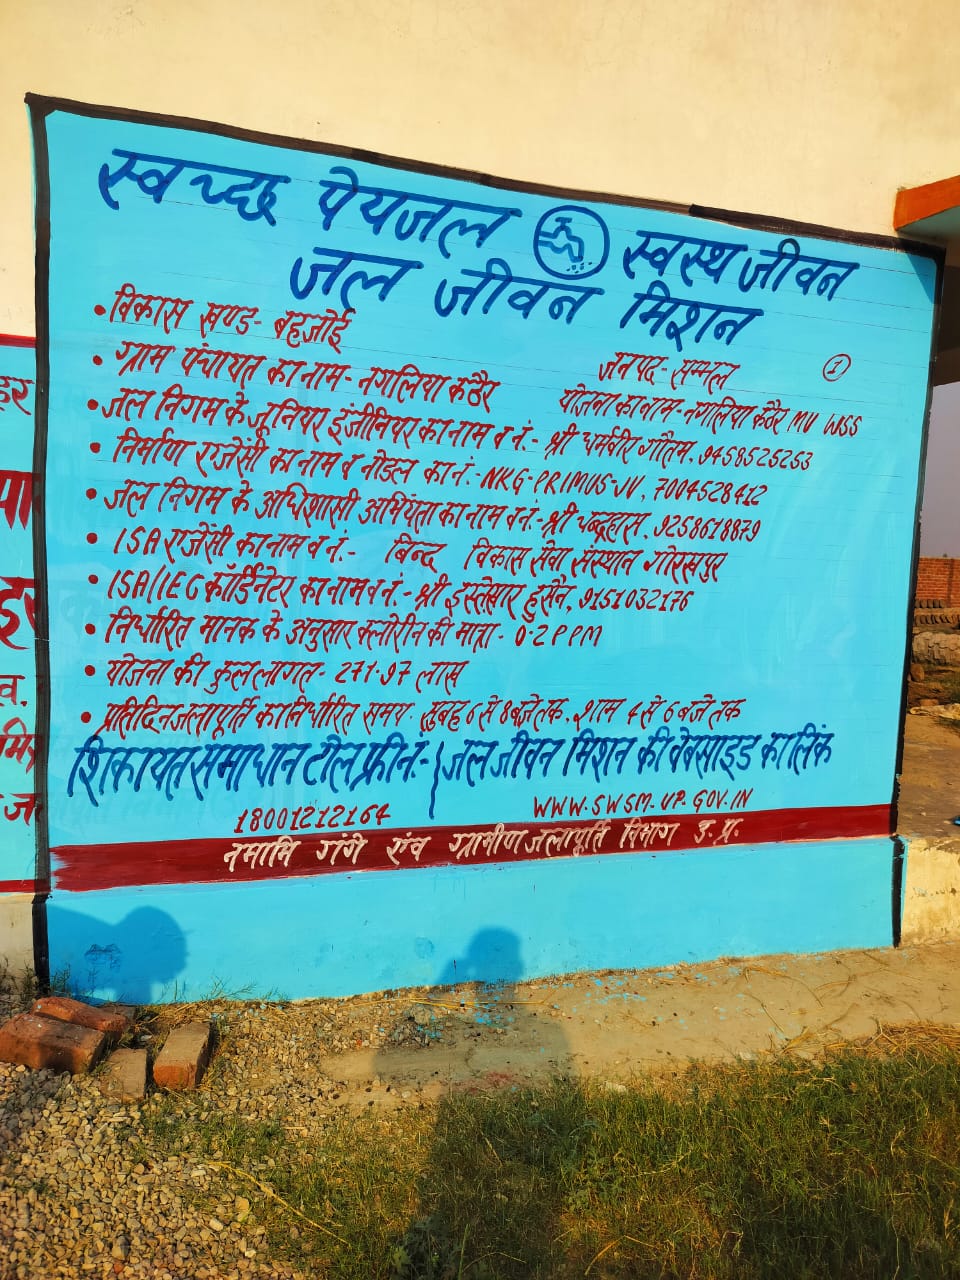 स्वच्छ पेयजल स्वस्थ जीवन
जल जीवन मिशन
• विकास खण्ड- बहजोई जनपद- सम्भल 1
• ग्राम पंचायत का नाम- नगलिया कठैर योजना का नाम- नगलिया कठैर MV WSS
• जल निगम के जूनियर इंजीनियर का नाम व नं.- श्री धर्मवीर गौतम, 9458525253
• निर्माण एजेंसी का नाम व नोडल का नं.- NKG-PRIMUS-JV, 7004528412
• जल निगम के अधिशासी अभियंता का नाम व नं.- श्री चन्द्रहास, 9258618879
• ISA एजेंसी का नाम व नं.- बिन्द विकास सेवा संस्थान गोरखपुर
• ISA/IEC कॉर्डिनेटर का नाम व नं.- श्री इस्तेखार हुसैन, 9151032176
• निर्धारित मानक के अनुसार क्लोरीन की मात्रा- 0.2 PPM
• योजना की कुल लागत- 271.97 लाख
• प्रतिदिन जलापूर्ति का निर्धारित समय- सुबह 6 से 8 बजे तक, शाम 4 से 6 बजे तक
शिकायत समाधान टोल फ्री नं.- जल जीवन मिशन की वेबसाइड का लिंक
18001212164 WWW.SWSM-UP.GOV.IN
नमामि गंगे एंव ग्रामीण जलापूर्ति विभाग उ.प्र.